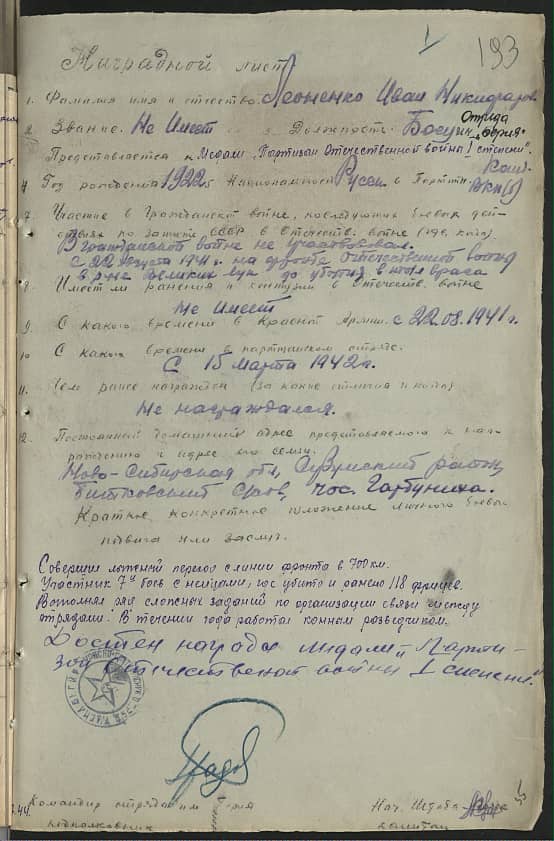 193
Наградной лист
1. Фамилия имя и отчество Леоненко Иван Никифоров.
2. Звание. Не Имеет 3. Должность. Боец Отряда
Представляется к Медали "Партизан Отечественной войны I степени".
4. Год рождения 1922 г. Национальность Русск. 6 Партийн. Канд. ВКП(б)
7. Участие в гражданской войне, последующих боевых дей-
ствиях по защите СССР в Отечеств. войне (где, когда)
В гражданской войне не участвовал.
с 22 августа 1941 г. на фронте отечественной войны
в р-не Великих Лук до ухода в тыл врага
8. Имеет ли ранения и контузии в Отечеств. войне
Не Имеет
9. С какого времени в Красной Армии. с 22.08.1941 г.
10. С какого времени в партизанском отряде.
С 15 марта 1942 г.
11. Чем ранее награжден (за какие отличия и когда)
Не награждался.
12. Постоянный домашний адрес представляемого к наг-
раждению и адрес его семьи.
Ново-Сибирская обл, район,
пос.
Краткое конкретное изложение личного боевого
подвига или заслуг.
Совершил лыжный переход с линии фронта в 700 км.
Участник 7и боев с немцами, где убито и ранено 118 фрицев.
Выполнял ряд сложных заданий по организации связи между
отрядами. В течении года работал конным разведчиком.
Достоин награды медали "Парти-
зан Отечественной войны I степени."
Командир отряда им.
подполковник
Нач. Штаба
капитан